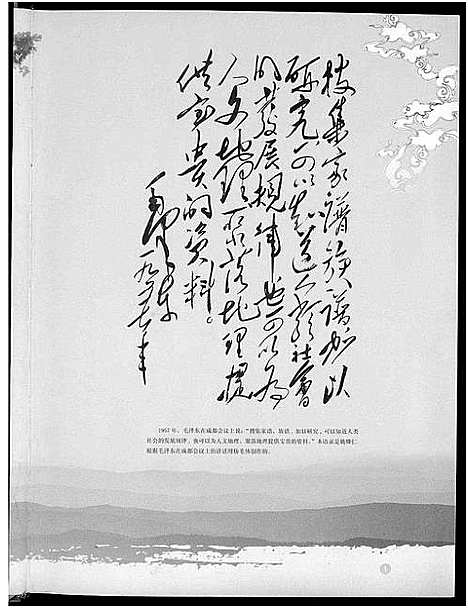 搜集家谱族谱加以
研究可以知道人类社会
的发展规律也可以为
人文地理聚落地理提
供宝贵的资料。
毛泽东
一九五七年
1957 年，毛泽东在成都会议上说：“搜集家谱、族谱，加以研究，可以知道人类
社会的发展规律，也可以为人文地理、聚落地理提供宝贵的资料。”本语录是姚
根据毛泽东在成都会议上的讲话用仿毛体创作的。
1